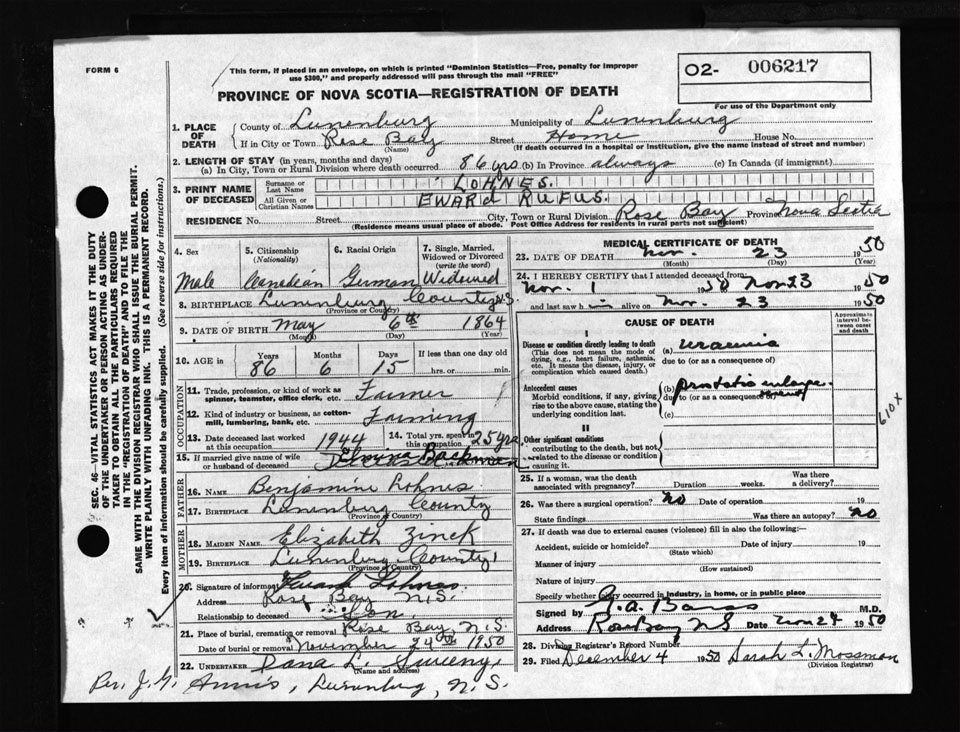 FORM 6
This form, if placed in an envelope, on which is printed "Dominion Statistics—Free, penalty for improper
use $300," and properly addressed will pass through the mail "FREE"
02- 006217
PROVINCE OF NOVA SCOTIA—REGISTRATION OF DEATH
For use of the Department only
1. PLACE OF DEATH { County of Lunenburg Municipality of Lunenburg
If in City or Town Rose Bay Street Home House No.
(Name) (If death occurred in a hospital or institution, give the name instead of street and number)
2. LENGTH OF STAY (in years, months and days)
(a) In City, Town or Rural Division where death occurred 86 yrs (b) In Province always (c) In Canada (if immigrant)
3. PRINT NAME OF DECEASED { Surname or Last Name LOHNES.
All Given or Christian Names EWARd RUFUS.
RESIDENCE No. Street City, Town or Rural Division Rose Bay Province Nova Scotia
(Residence means usual place of abode. Post Office Address for residents in rural parts not sufficient)
4. Sex Male
5. Citizenship (Nationality) Canadian
6. Racial Origin German
7. Single, Married, Widowed or Divorced (write the word) Widowed
8. BIRTHPLACE Lunenburg County N.S.
(Province or Country)
9. DATE OF BIRTH May 6th 1864
(Month) (Day) (Year)
10. AGE IN Years 86 Months 6 Days 15 If less than one day old hrs. or min.
OCCUPATION
11. Trade, profession, or kind of work as spinner, teamster, office clerk, etc. Farmer
12. Kind of industry or business, as cotton-mill, lumbering, bank, etc. Farming
13. Date deceased last worked at this occupation 1944 14. Total yrs. spent in this occupation 25 yrs
15. If married give name of wife or husband of deceased Backman
FATHER
16. Name Benjamine Lohnes
17. BIRTHPLACE Lunenburg County
(Province or Country)
MOTHER
18. MAIDEN NAME Elizabeth Zinck
19. BIRTHPLACE Lunenburg County
(Province or Country)
20. Signature of informant Lohnes
Address Rose Bay N.S.
Relationship to deceased Son
21. Place of burial, cremation or removal Rose Bay, N.S.
Date of burial or removal November 24th 1950
22. UNDERTAKER Dana L. Sweeny,
(Name and address)
Per. J. G. Annis, Lunenburg, N.S.
MEDICAL CERTIFICATE OF DEATH
23. DATE OF DEATH Nov. 23 1950
(Month) (Day) (Year)
24. I HEREBY CERTIFY that I attended deceased from
Nov. 1 1950 Nov 23 1950
and last saw h alive on Nov. 23 1950
CAUSE OF DEATH
Approximate interval between onset and death
I
Disease or condition directly leading to death (a) uraemia
(This does not mean the mode of dying, e.g., heart failure, asthenia, etc. It means the disease, injury, or complication which caused death.)
due to (or as a consequence of)
Antecedent causes (b) prostatic enlarge-
Morbid conditions, if any, giving rise to the above cause, stating the underlying condition last.
due to (or as a consequence of)
(c)
610X
II
Other significant conditions contributing to the death, but not related to the disease or condition causing it.
25. If a woman, was the death associated with pregnancy? Duration weeks. Was there a delivery?
26. Was there a surgical operation? no Date of operation 19
State findings Was there an autopsy? no
27. If death was due to external causes (violence) fill in also the following:—
Accident, suicide or homicide? Date of injury 19
(State which)
Manner of injury
(How sustained)
Nature of injury
Specify whether injury occurred in industry, in home, or in public place
Signed by M.D.
Address Rose Bay NS Date Nov 24 1950
28. Division Registrar's Record Number
29. Filed December 4 1950 Sarah L. Mossman
(Division Registrar)
SEC. 46—VITAL STATISTICS ACT MAKES IT THE DUTY
OF THE UNDERTAKER OR PERSON ACTING AS UNDER-
TAKER TO OBTAIN ALL THE PARTICULARS REQUIRED
IN THE "REGISTRATION OF DEATH" AND TO FILE THE
SAME WITH THE DIVISION REGISTRAR WHO SHALL ISSUE THE BURIAL PERMIT.
WRITE PLAINLY WITH UNFADING INK. THIS IS A PERMANENT RECORD.
Every item of information should be carefully supplied. (See reverse side for instructions.)